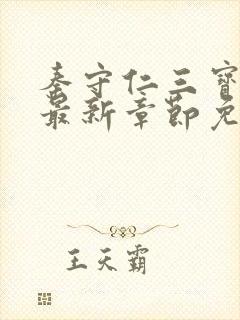 秦守仁三寶
最新章節免
王天霸